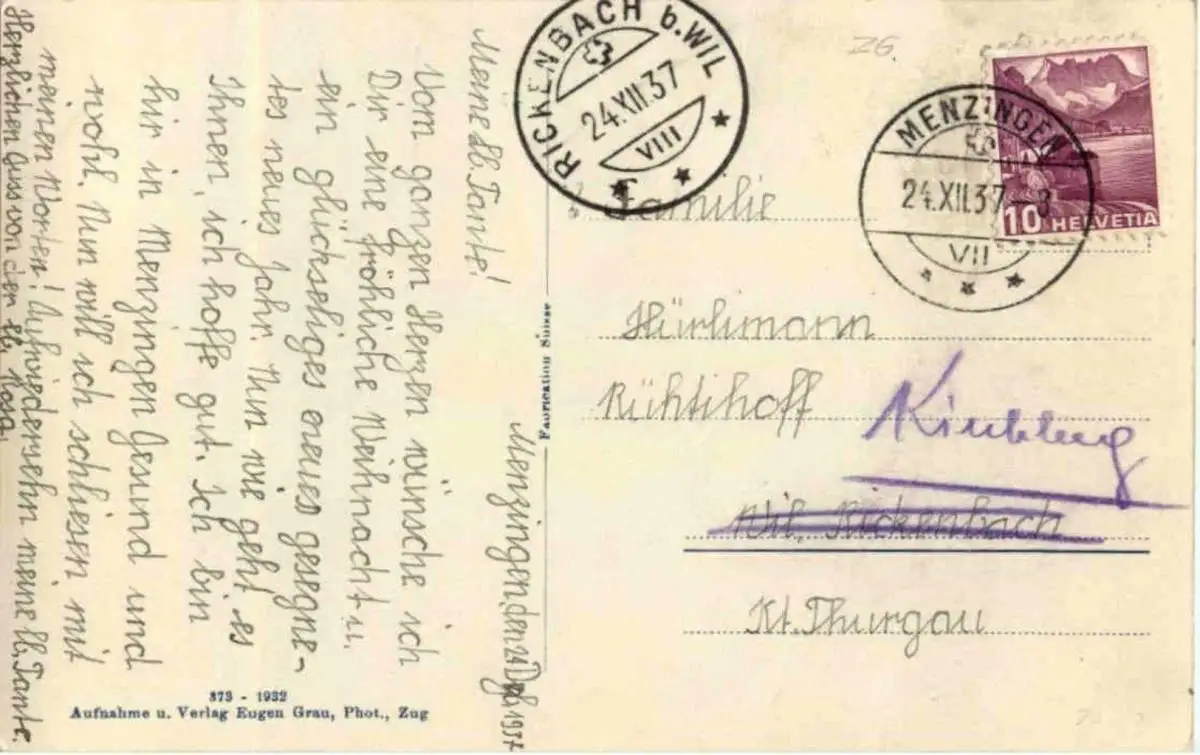 Menzingen den 24 Dez. 1937
Meine lb. Tante!
Vom ganzen Herzen wünsche ich
Dir eine fröhliche Weihnacht u.
ein glückseliges neues gesegne-
tes neues Jahr. Nun wie geht es
Ihnen, ich hoffe gut. Ich bin
hir in Menzingen Gesund und
wohl. Nun will ich schliesen mit
meinen Worten! Aufwiedersehn meine lb. Tante.
Herzlichen Guss von der lb. Rosa.
373 - 1932
Aufnahme u. Verlag Eugen Grau, Phot., Zug
Fabrication Suisse
RICKENBACH b. WIL
24.XII.37
VIII
ZG.
MENZINGEN
24.XII.37-8
VII
10 HELVETIA
Familie
Hürlimann
Rühtihoff
Kirchberg
Wil, Rickenbach
Kt. Thurgau